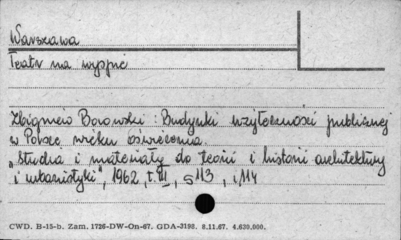 Warszawa
Teatr na wyspie
Zbigniew Borowski: Budynki użyteczności publicznej
w Polsce wieku oświecenia.
"Studia i materiały do teorii i historii architektury
i urbanistyki", 1962, t. II, s 113, i. 114
CWD. B-15-b. Zam. 1726-DW-On-67. GDA-3198. 8.11.67. 4.630.000.